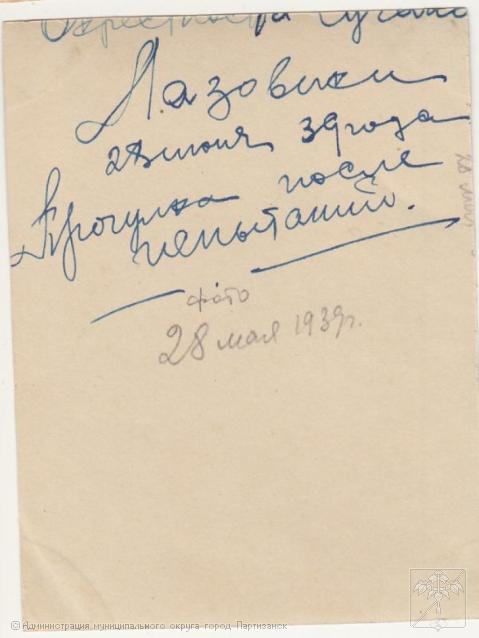 Окрестности Сучана
Лазовики
28 июня 39 года
Прогулка после
испытаний.
фото
28 мая 1939г.
© Администрация муниципального округа город Партизанск